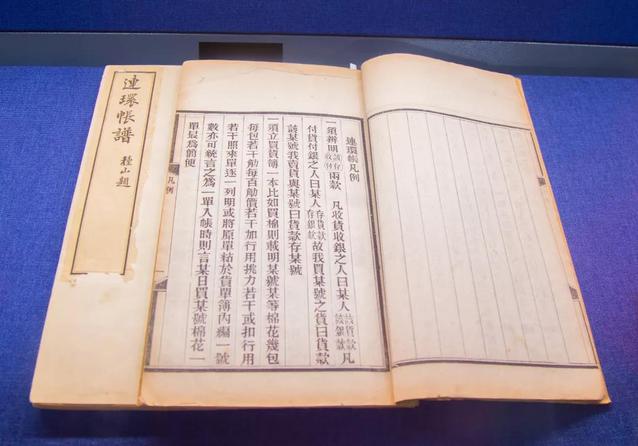 連環帳譜
連環帳凡例
一須辨明該存收付兩款 凡收貨收銀之人曰某人該貨款該銀款凡
付貨付銀之人曰某人存貨款存銀款故我買某號之貨曰貨款
該某號我賣貨與某號曰貨款存某號
一須立買貨簿一本比如買棉則載明某號某等棉花幾包
每包若干觔每百觔價若干加行用挑力若干或扣行用
若干照來單逐一列明或將原單粘於貨單簿內編一號
數亦可統言之爲一單入帳時則言某日買某號棉花一
單最爲簡便
凡例